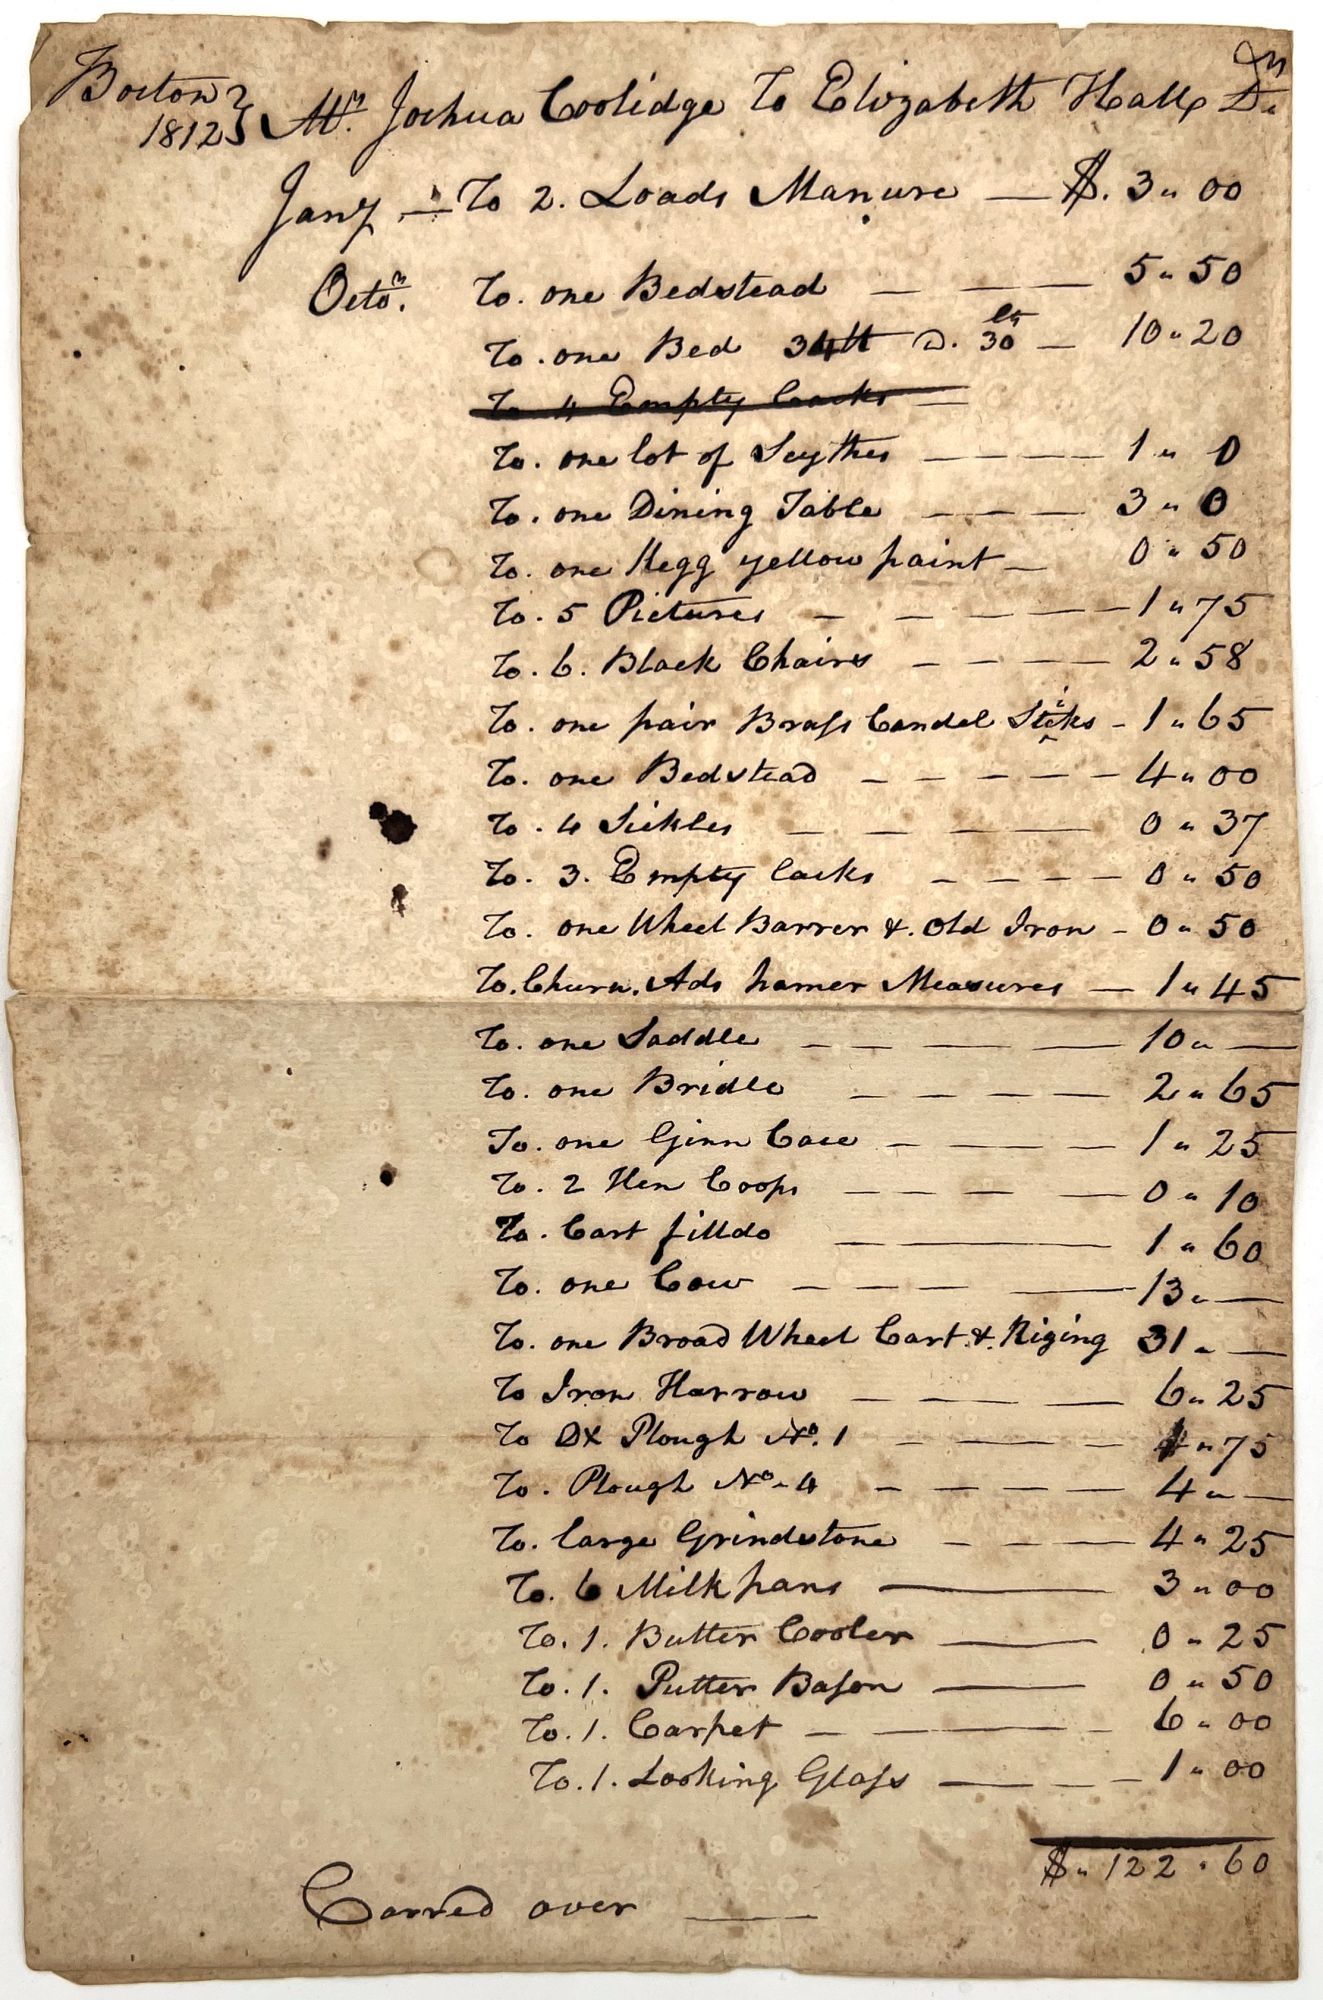 Boston 1812 Mr. Joshua Coolidge To Elizabeth Hall Dr
Jany — To 2. Loads Manure — $. 3 " 00
Octor. To. one Bedstead — — — 5 " 50
To. one Bed 34 lb @. 30 cts — 10 " 20
To 4 Empty Casks —
To. one lot of Scythes — — — — 1 " 0
To. one Dining Table — — — 3 " 0
To. one Kegg yellow paint — 0 " 50
To. 5 Pictures — — — — — 1 " 75
To. 6. Black Chairs — — — — 2 " 58
To. one pair Brass Candel Sticks - 1 " 65
To. one Bedstead — — — — — 4 " 00
To. 4 Sickles — — — — 0 " 37
To. 3. Empty Casks — — — — 0 " 50
To. one Wheel Barrer &. Old Iron - 0 " 50
To. Churn. Ads hamer Measures — 1 " 45
To. one Saddle — — — — — 10 " —
To. one Bridle — — — — 2 " 65
To. one Ginn Case — — — 1 " 25
To. 2 Hen Coops — — — — 0 " 10
To. Cart filldo — 1 " 60
To. one Cow — — — — 13 " —
To. one Broad Wheel Cart. &. Riging 31 " —
To Iron Harrow — — — — 6 " 25
To Ox Plough No. 1 — — — — " 75
To. Plough No. 4 — — — — 4 " —
To. large Grindstone — — — 4 " 25
To. 6 Milk pans — 3 " 00
To. 1. Butter Cooler — 0 " 25
To. 1. Putter Bason — 0 " 50
To. 1. Carpet — — — — 6 " 00
To. 1. Looking Glass — — — 1 " 00
$ " 122 " 60
Carred over —